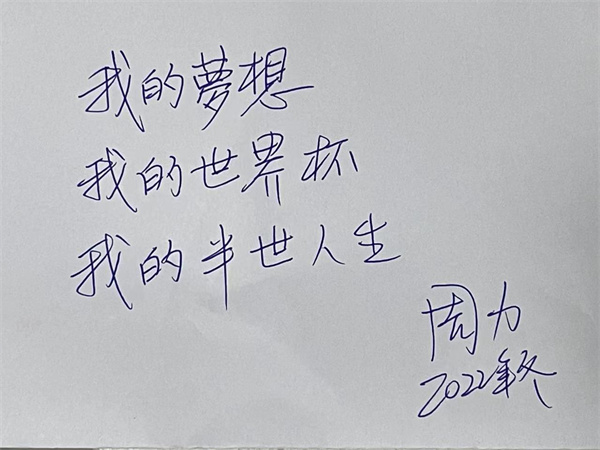 我的夢想
我的世界杯
我的半世人生
周力
2022年冬